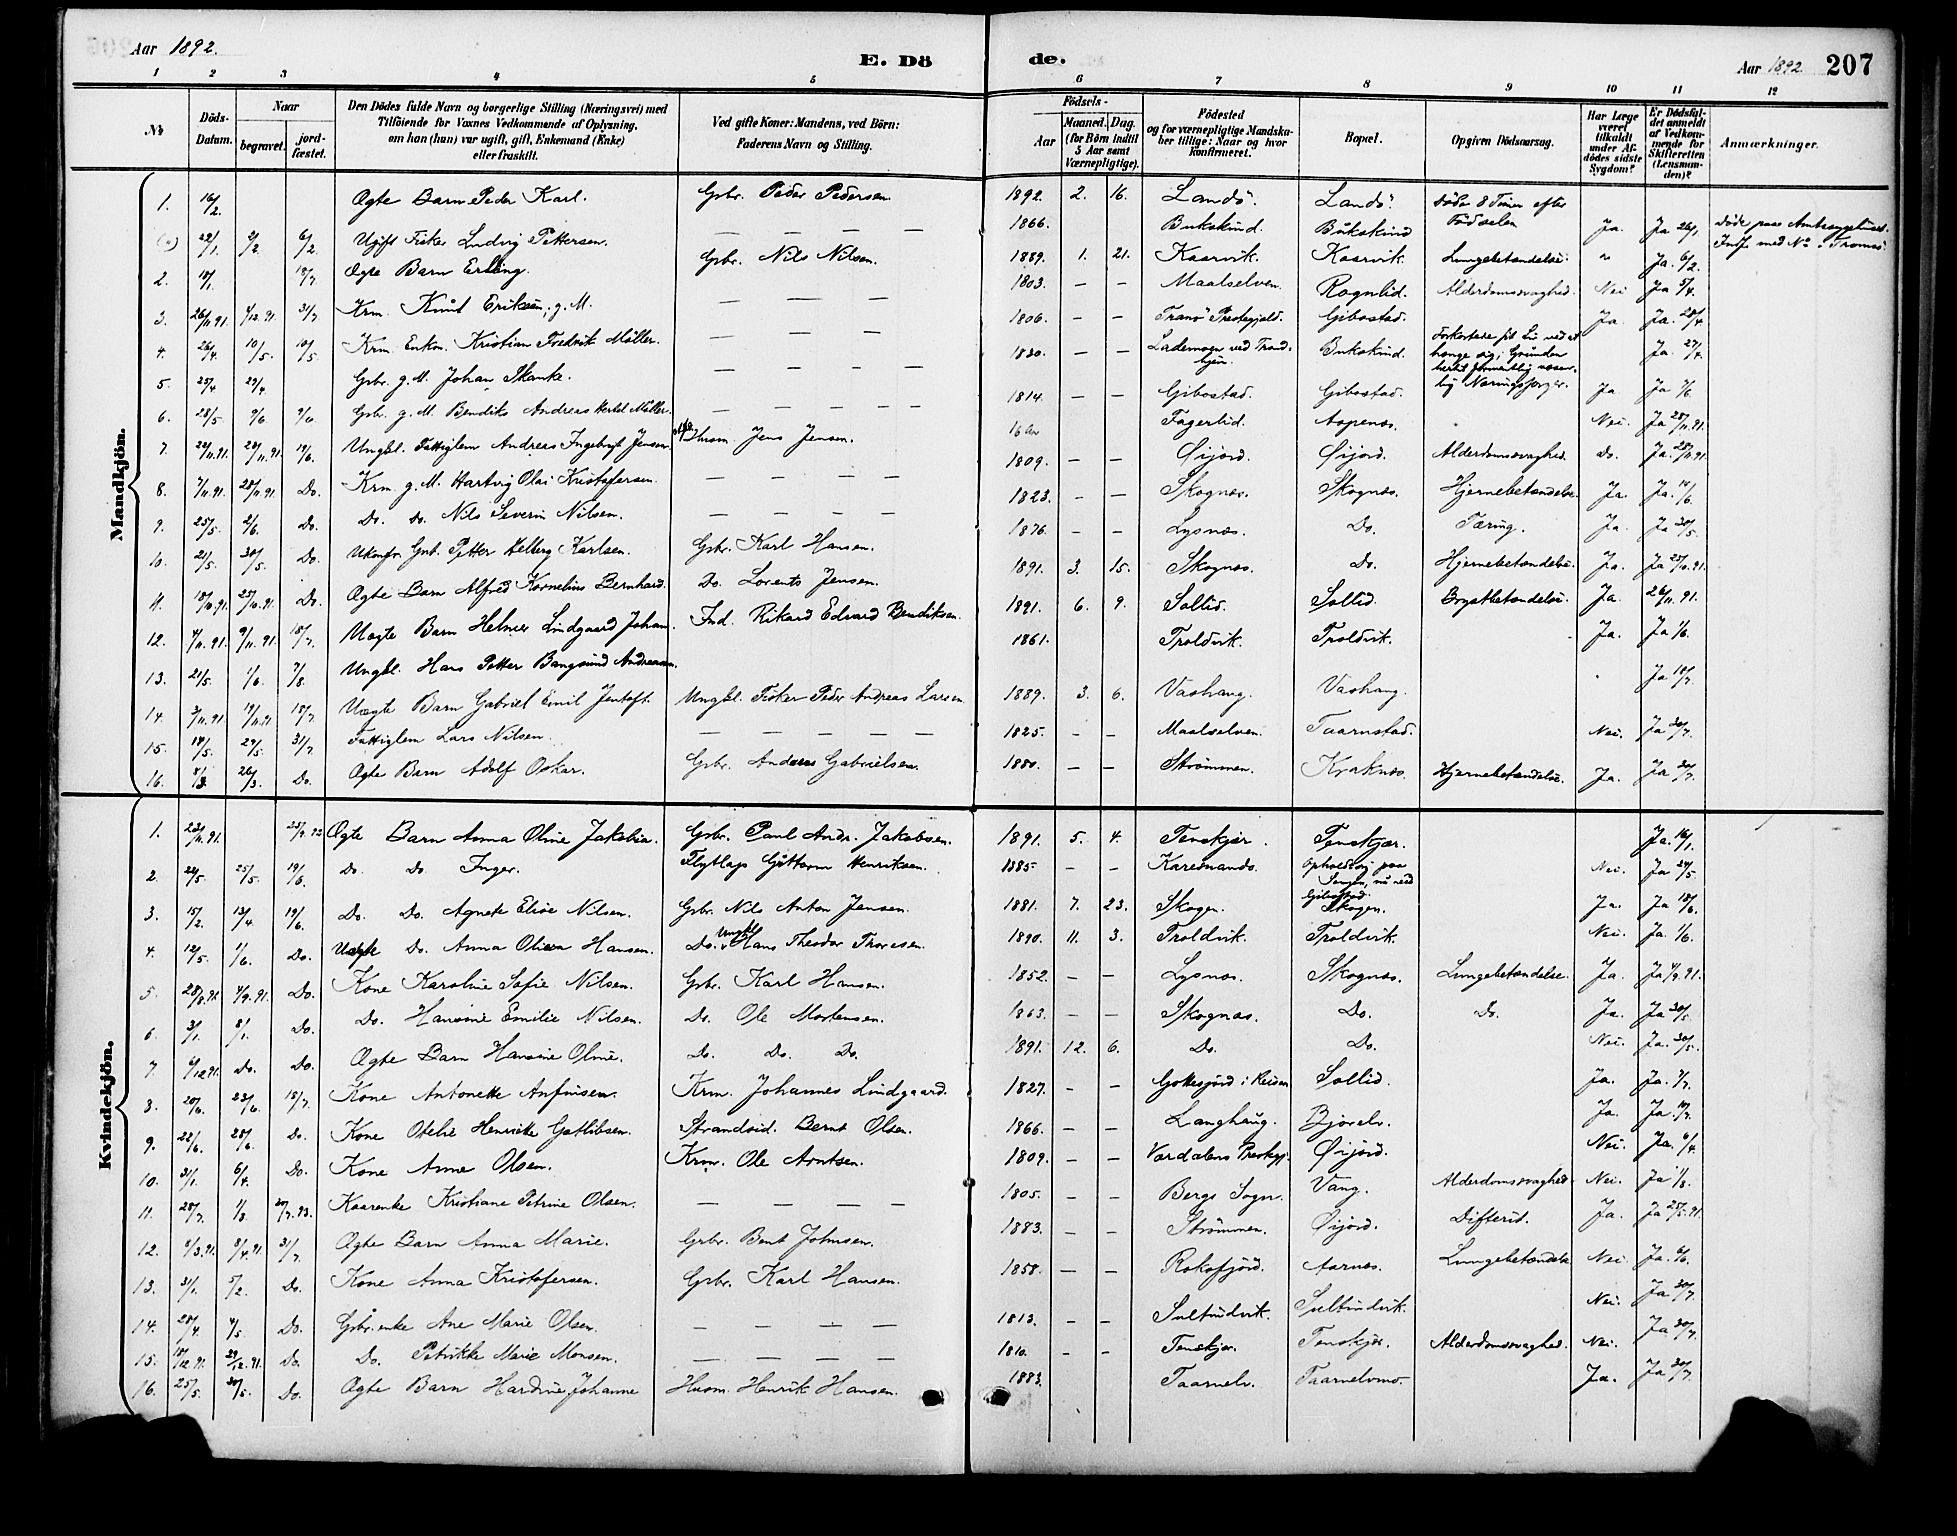 Aar 1892.
E. Dö
de.
Aar 1892 207
1 2 3 4 5 6 7 8 9 10 11 12
No
Döds-Datum.
Naar
begravet.
jordfæstet.
Den Dödes fulde Navn og borgerlige Stilling (Næringsvei) med
Tilföiende for Voxnes Vedkommende af Oplysning,
om han (hun) var ugift, gift, Enkemand (Enke)
eller fraskilt.
Ved gifte Koner: Mandens, ved Börn:
Faderens Navn og Stilling.
Födsels-
Aar
Maaned. Dag.
(for Börn indtil
5 Aar samt
Værnepligtige).
Födested
og for værnepligtige Mandskaber tillige: Naar og hvor
konfirmeret.
Bopæl.
Opgiven Dödsaarsag.
Har Læge
været
tilkaldt
under Afdödes sidste
Sygdom?
Er Dödsfaldet anmeldt
af Vedkommende for
Skifteretten
(Lensmanden)?
Anmærkninger.
Mandkjön.
1. 16/2. Ægte Barn Peder Karl. Gbr. Peder Pedersen 1892. 2. 16. Landö. Landö. Döde 8 Timer efter Födselen
22/1. 6/2. Ugift Fisker Ludvig Pettersen. — — — — 1866. Bukskind. Bukskind Ja. Ja 26/1 Döde paa Amtssygehuset.
2. 18/1. 18/7. Ægte Barn Erling. Gbr. Nils Nilsen. 1889. 1. 21. Kaarvik. Kaarvik. Lungebetændelse. " Ja. 6/2.
3. 26/11.91. 4/12.91. 31/7. Krm. Knut Eriksen. g. M. — — — 1803. — — Maalselven. Rognlid. Alderdomssvaghed. Nei Ja
4. 26/4. 10/5. 10/5. Krm. Enkm. Kristian Fredrik Möller. — — — 1806. — — Tranö Prestegjeld. Gibostad. Ja. Ja. 28/4
5. 25/4 29/4. Gbr. g. M. Johan Skanke. — — — — 1830. — — Lademoen ved Trondhjem. Bukskind. Forkortede sit Liv ved at hænge sig; Grunden Næringssorger. Ja. 27/4.
6. 28/5. 9/6. Gbr. g. M. Bendiks Andreas Möller. — — — — 1814. — — Gibostad. Gibostad. Ja Ja
7. 22/11.91. 28/11.91. 19/6. Ungkl. Fattiglem Andreas Ingebrigt Jensen Husm. Jens Jensen. Fagerlid. Aspenes. Nei. Ja 28/11.91.
8. 7/11.91. 28/11.91. Do. Krm. g. M. Hartvig Olai Kristofersen. — — — — 1809. — — Öijord. Öijord. Alderdomssvaghed. do. Ja. 28/11.91.
9. 25/5. 2/6. Do. Do. do. Nils Severin Nilsen. — — — — 1823. — — Skognes. Skognes. Hjernebetændelse. Ja. Ja. 10/6.
10. 21/5. 30/5. Do. Ukonfr. Gut. Petter Helberg Karlsen. Gbr. Karl Hansen. 1876. — — Lysnes. Do. Tæring. Ja. Ja 30/5.
11. 18/10.91. 25/10.91. Do. Ægte Barn Alfred Kornelius Bernhard. Do. Lorents Jensen. 1891. 3. 15. Skognes. Do. Hjernebetændelse. Ja. Ja 25/10.91.
12. 4/11.91. 9/11.91. 18/7. Uægte Barn Helmer Lindgaard Johan. Ind. Rikard Edvard Bendiksen. 1891. 6. 9. Sollid. Sollid. Brystbetændelse. Ja. 26/11.91.
13. 21/5. 1/6. 7/8. Ungkl. Hans Petter Bangsund Andreassen. 1861. Troldvik. Troldvik. Ja. Ja 1/6.
14. 3/11.91. 19/11.91 18/7. Uægte Barn Gabriel Emil Jentoft. Ungkl. Fisker Peder Andreas Larsen 1889. 3. 6. Vashaug. Vashaug. Ja 18/7.
15. 18/5. 29/5. 31/7. Fattiglem Lars Nilsen. — — — — — 1825. — — Maalselven. Taarnstad. Nei. Ja 30/7.
16. 26/3. Do. Ægte Barn Adolf Oskar. Gbr. Anders Gabrielsen. 1880. — — Strömmen. Kraknes. Hjernebetændelse. Ja. Ja 30/7.
Kvindekjön.
1. 23/11.91. Ægte Barn Anna Oline Jakobia. Gbr. Paul Andr. Jakobsen. 1891. 5. 4. Tenskjær. Tenskjær. Ja. 16/1.
2. 22/5. 25/5. 19/6. Do. Do Inger. Flytlap Guttorm Henriksen. 1885. — — Karesuando. Opholdssig paa Senjen, nu ved Gibostad. Nei. Ja 24/5
3. 15/2. 13/4. 19/6. Do. Do. Agnete Elise Nilsen. Gbr. Nils Anton Jensen. 1881. 7. 23. Skogen. Skogen. Ja. Ja 18/6.
4. 12/5. 1/6. Do. Uægte Do. Anna Olisa Hansen. Do. Ungkl. Hans Theodor Thoresen. 1890. 11. 3. Troldvik. Troldvik. Nei. Ja. 1/6.
5. 28/8.91. 4/9.91. Do. Kone Karoline Sofie Nilsen. Gbr. Karl Hansen. 1852. — — Lysnes. Skognes. Lungebetændelse. Ja. Ja 4/9.91.
6. 3/1. 8/1. Do. Do. Hansine Emilie Nilsen. Do. Ole Mortensen. 1863. — — Skognes. Do. Do. Ja. Ja 30/5.
7. 6/12.91. Do. Do. Ægte Barn Hansine Oline. Do. Do. Do. 1891. 12. 6. Do. Do. Nei. Ja. 30/5.
8. 20/6. 23/6. 18/7. Kone Antonette Anfinsen. Krm. Johannes Lindgaard. 1827. — — Gottesjord i Reisen Sollid. Ja. Ja.
9. 22/6. 28/6. Do. Kone Otelie Henriette Gotlibsen. Strandsid. Bernt Olsen. 1866. — — Langhaug. Bjorelv. Ja. Ja
10. 31/1. 6/4. Do. Kone Anne Olsen. Krm. Ole Arntsen. 1809. — — Værdalens Prestegj. Öijord. Nei. Ja. 6/4
11. 28/7. 1/8. Kaarenke Kristiane Petrine Olsen. — — — — 1805. — — Bergs Sogn. Vang. Alderdomssvaghed. Nei. Ja 1/8.
12. 6/3.91. 8/4.91. 31/7. Ægte Barn Anna Marie. Gbr. Bent Johnsen. 1883. — — Strömmen. Öijord. Difterit. Ja. Ja 25/5.91.
13. 31/1. 5/2. Do. Kone Anna Kristofersen. Gbr. Karl Hansen. 1858. — — Rokefjord. Aarnes. Lungebetændelse Nei. Ja. 6/6.
14. 28/4. 4/5. Do. Gbr.enke Ane Marie Olsen. — — — — 1813. — — Sultindvik. Sultindvik. Nei. Ja 30/7.
15. 18/12.91. 29/12.91. Do. Do. Petrikke Marie Monsen. — — — — 1810. — — Tenskjær. Tenskjær. Alderdomssvaghed. Nei. Ja 30/7.
16. 25/5. 30/5. Do. Ægte Barn Hardine Johanne Husm. Henrik Hansen. 1883. Taarnelv. Taarnelvmo. Ja. Ja 30/7.